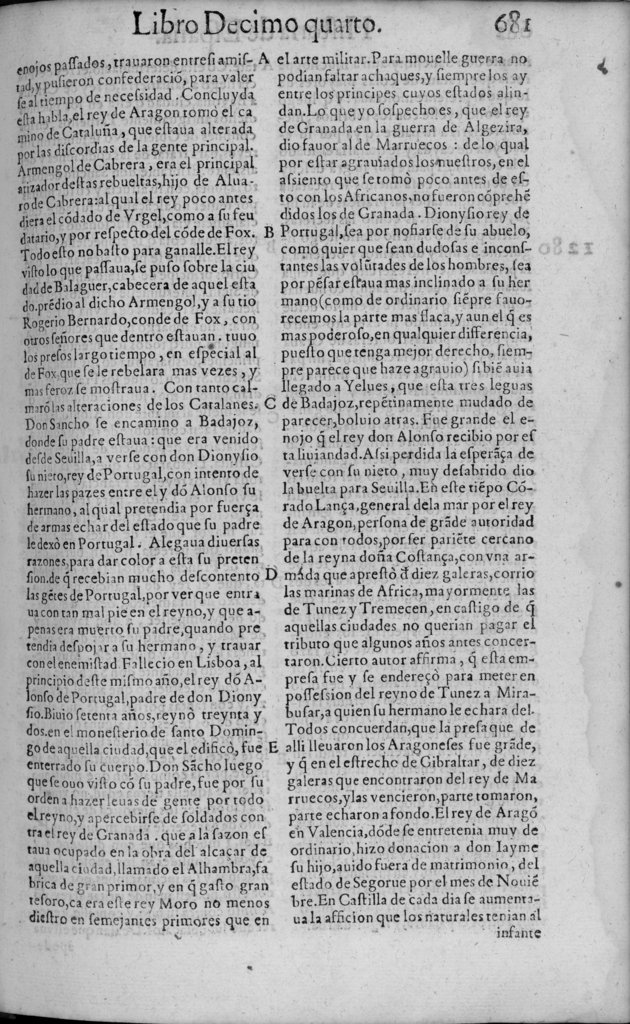 Libro Decimo quarto. 681
enojos paſſados, trauaron entre ſi amiſ-
tad, y puſieron confederació, para valer
ſe al tiempo de neceſsidad. Concluyda
eſta habla, el rey de Aragon tomò el ca
mino de Cataluña, que eſtaua alterada
por las diſcordias de la gente principal.
Armengol de Cabrera, era el principal
atizador deſtas rebueltas, hijo de Alua-
ro de Cabrera: al qual el rey poco antes
diera el códado de Vrgel, como a ſu feu
datario, y por reſpecto del códe de Fox.
Todo eſto no baſto para ganalle. El rey
viſto lo que paſſaua, ſe puſo ſobre la ciu
dad de Balaguer, cabecera de aquel eſta
do. prédio al dicho Armengol, y a ſu tio
Rogerio Bernardo, conde de Fox, con
otros ſeñores que dentro eſtauan. tuuo
los preſos largo tiempo, en eſpecial al
de Fox, que ſe le rebelara mas vezes, y
mas feroz ſe moſtraua. Con tanto cal-
maró las alteraciones de los Catalanes.
Don Sancho ſe encamino a Badajoz,
donde ſu padre eſtaua: que era venido
deſde Seuilla, a verſe con don Dionyſio
ſu nieto, rey de Portugal, con intento de
hazer las pazes entre el y dó Alonſo ſu
hermano, al qual pretendia por fuerça
de armas echar del eſtado que ſu padre
le dexò en Portugal. Alegaua diuerſas
razones, para dar color a eſta ſu preten
ſion. de q̃ recebian mucho deſcontento
las gétes de Portugal, por ver que entra
ua con tan mal pie en el reyno, y que a-
penas era muerto ſu padre, quando pre
tendia deſpojar a ſu hermano, y trauar
con el enemiſtad. Fallecio en Lisboa, al
principio deſte miſmo año, el rey dó A-
lonſo de Portugal, padre de don Diony
ſio. Biuio ſetenta años, reynò treynta y
dos. en el moneſterio de ſanto Domin-
go de aquella ciudad, que el edificò, fue
enterrado ſu cuerpo. Don Sácho luego
que ſe ouo viſto có ſu padre, fue por ſu
orden a hazer leuas de gente por todo
el reyno, y apercebirſe de ſoldados con
tra el rey de Granada. que a la ſazon eſ
taua ocupado en la obra del alcaçar de
aquella ciudad, llamado el Alhambra, fa
brica de gran primor, y en q̃ gaſto gran
teſoro, ca era eſte rey Moro no menos
dieſtro en ſemejantes primores que en
A
B
C
D
E
el arte militar. Para mouelle guerra no
podian faltar achaques, y ſiempre los ay
entre los principes cuyos eſtados alin-
dan. Lo que yo ſoſpecho es, que el rey
de Granada en la guerra de Algezira,
dio fauor al de Marruecos: de lo qual
por eſtar agrauiados los nueſtros, en el
aſsiento que ſe tomò poco antes de eſ-
to con los Africanos, no fueron cóprehé
didos los de Granada. Dionyſio rey de
Portugal, ſea por no fiarſe de ſu abuelo,
como quier que ſean dudoſas e inconſ-
tantes las volútades de los hombres, ſea
por péſar eſtaua mas inclinado a ſu her
mano (como de ordinario ſiépre fauo-
recemos la parte mas flaca, y aun el q̃ es
mas poderoſo, en qualquier differencia,
pueſto que tenga mejor derecho, ſiem-
pre parece que haze agrauio) ſi bié auia
llegado a Yelues, que eſta tres leguas
de Badajoz, repétinamente mudado de
parecer, boluio atras. Fue grande el e-
nojo q̃ el rey don Alonſo recibio por eſ
ta liuiandad. Aſsi perdida la eſperãça de
verſe con ſu nieto, muy deſabrido dio
la buelta para Seuilla. En eſte tiépo Có-
rado Lança, general de la mar por el rey
de Aragon, perſona de gráde autoridad
para con todos, por ſer pariéte cercano
de la reyna doña Coſtança, con vna ar-
máda que apreſtò d̃ diez galeras, corrio
las marinas de Africa, mayormente las
de Tunez y Tremecen, en caſtigo de q̃
aquellas ciudades no querian pagar el
tributo que algunos años antes concer-
taron. Cierto autor affirma, q̃ eſta em-
preſa fue y ſe endereçò para meter en
poſſeſsion del reyno de Tunez a Mira-
buſar, a quien ſu hermano le echara del.
Todos concuerdan, que la preſa que de
alli lleuaron los Aragoneſes fue gráde,
y q̃ en el eſtrecho de Gibraltar, de diez
galeras que encontraron del rey de Ma
rruecos, y las vencieron, parte tomaron,
parte echaron a fondo. El rey de Aragó
en Valencia, dóde ſe entretenia muy de
ordinario, hizo donacion a don Iayme
ſu hijo, auido fuera de matrimonio, del
eſtado de Segorue por el mes de Nouié
bre. En Caſtilla de cada dia ſe aumenta-
ua la afficion que los naturales tenian al
infante